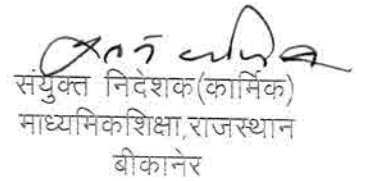 संयुक्त निदेशक(कार्मिक)
माध्यमिकशिक्षा,राजस्थान
बीकानेर